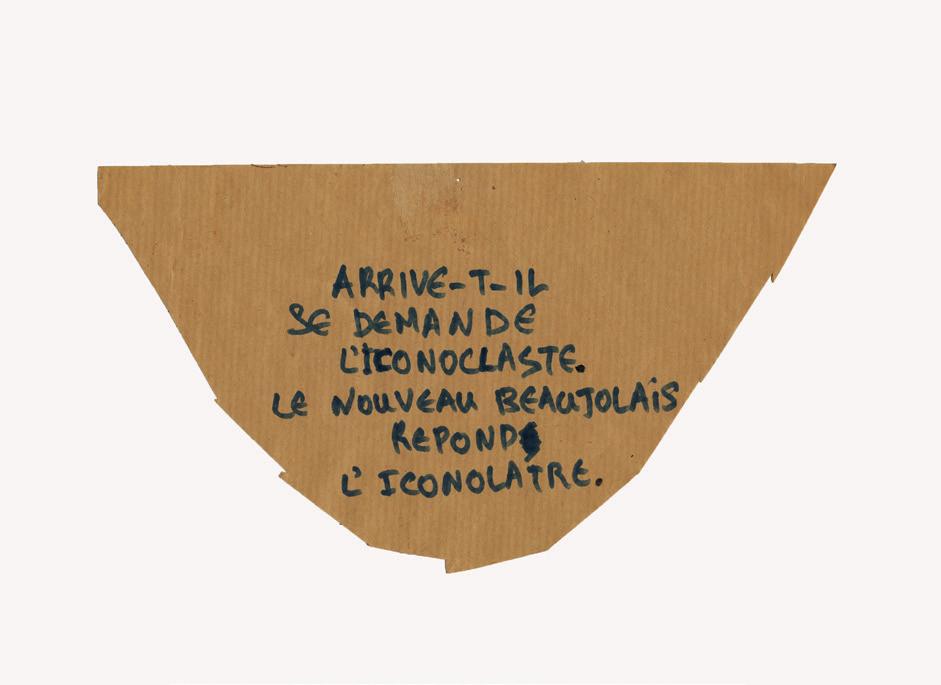 ARRIVE-T-IL
SE DEMANDE
L'ICONOCLASTE.
LE NOUVEAU BEAUJOLAIS
REPOND
L'ICONOLATRE.